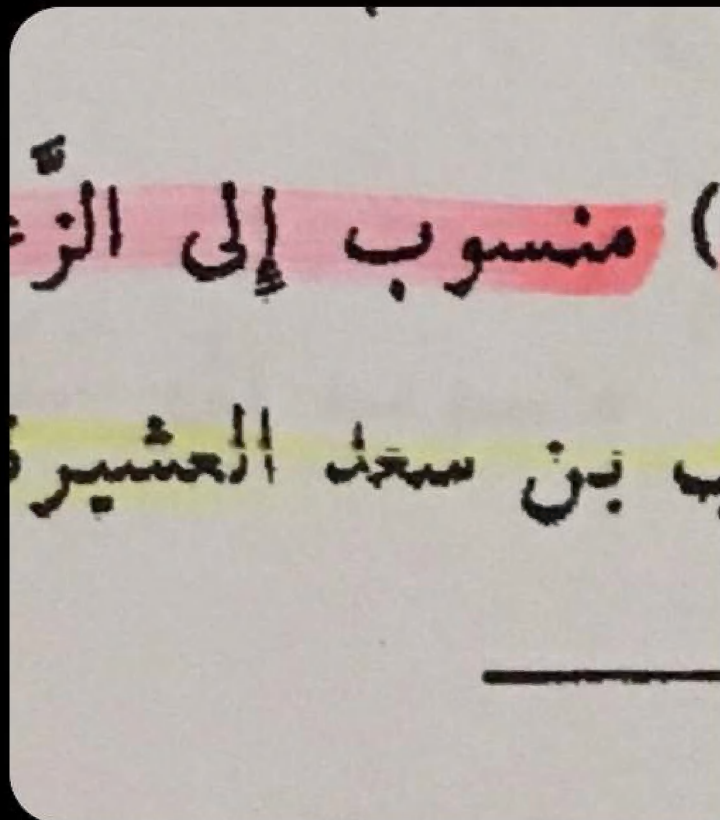 ) منسوب إلى
بن سعد العشيرة